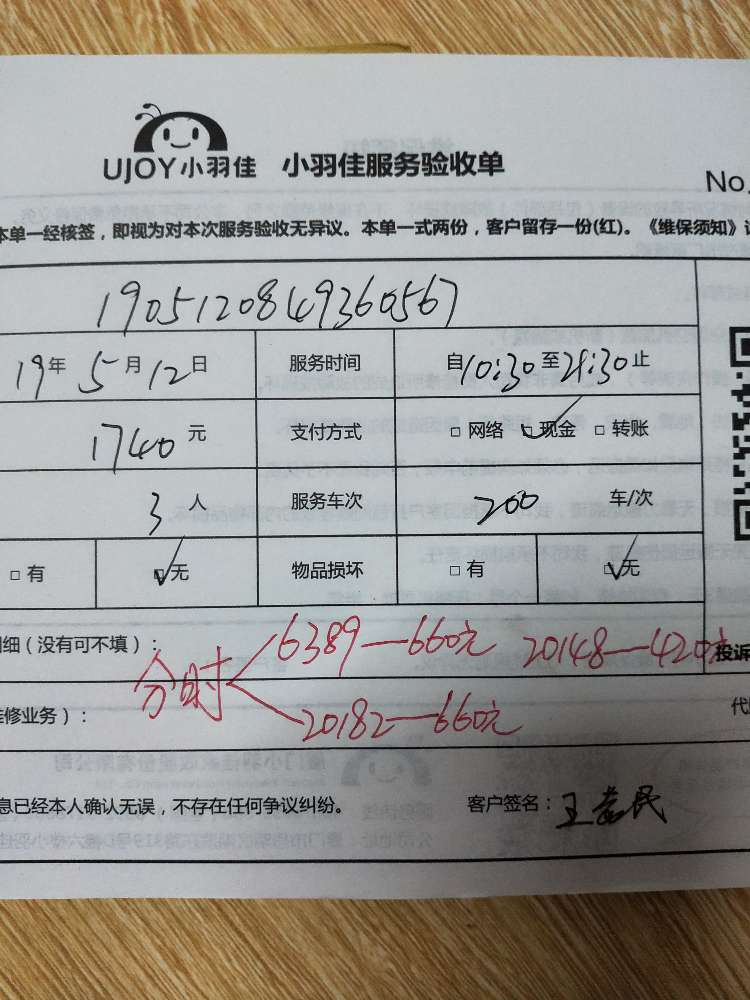 UJOY小羽佳 小羽佳服务验收单
No.
本单一经核签，即视为对本次服务验收无异议。本单一式两份，客户留存一份(红)。《维保须知》
1905120849360567
19年5月12日 服务时间 自10:30至21:30止
1740元 支付方式 □ 网络 ☑ 现金 □ 转账
3人 服务车次 200 车/次
□ 有 ☑ 无 物品损坏 □ 有 ☑ 无
细（没有可不填）： 6389—660元 20148—420元 投诉
分时
修业务）： 20182—660元
息已经本人确认无误，不存在任何争议纠纷。 客户签名：王 民